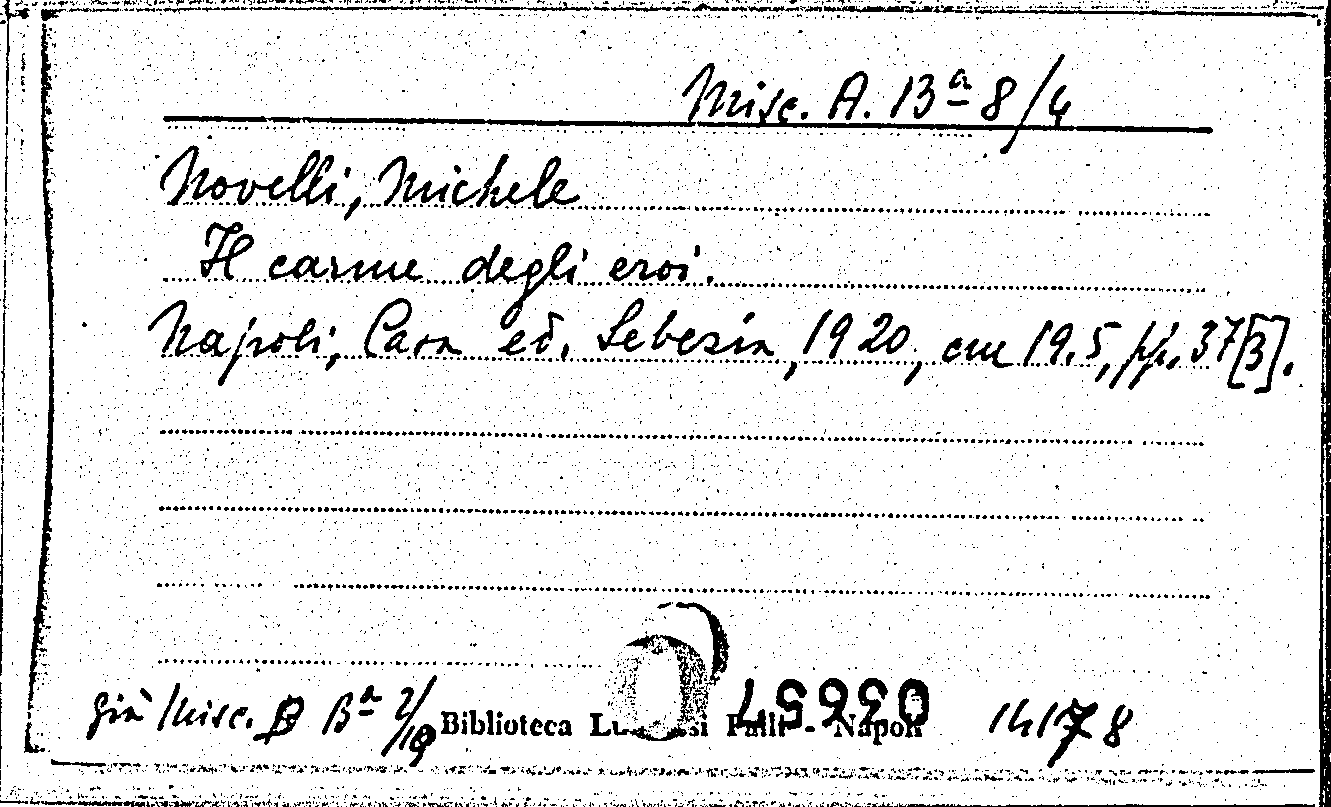 Misc. A. 13ª 8/4
Novelli, Michele
Il carme degli eroi.
Napoli, Casa ed. Sebezia, 1920, cm 19.5, pp. 37[3].
già Misc. B Bª 2/10 Biblioteca Lucchesi Palli - Napoli 14178